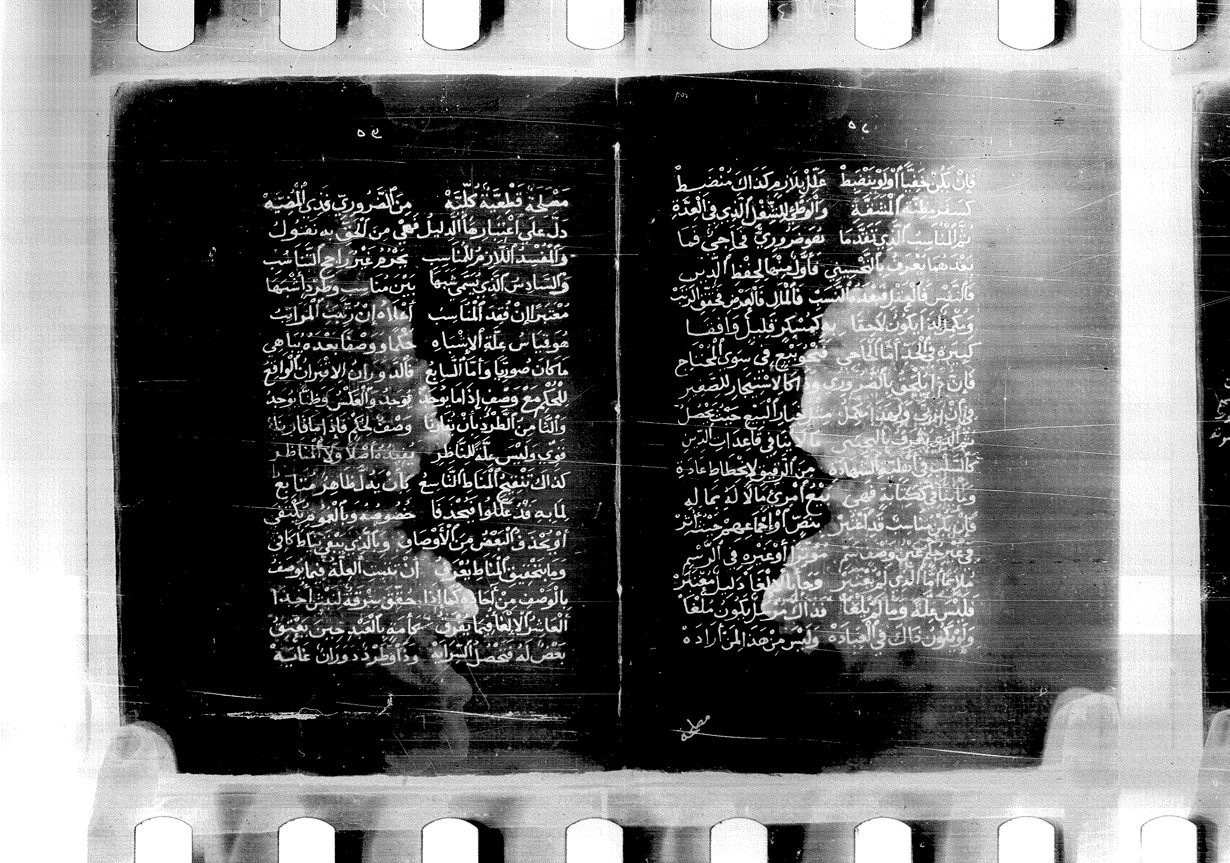 فإن يكن خفيا أو لم ينضبط علل بلازم كذاك منضبط
كسفر مظنة المشقة والوطئ للشغل الذي في العدة
ثم المناسب الذي تقدما نحو ضروري فحاجي فما
بعدهما يعرف بالتحسيني فأول منها لحفظ الدين
فالنفس فالعقل فبعده النسب فالمال فالعرض فحقق الرتب
ويكمل إذ يكون لاحقا كمسكر قليل وافقا
كبيره في الحد أما الحاجي فنحو بيع في سوى المحتاج
فإن يلحق بالضروري كالاستيجار للصغير
ولهذا مكمل مثل خيار البيع حين يحصل
ثم الذي يعرف بالتحسيني قاعدات الدين
كالسلب في أهلية الشهادة من الرقيق لانحطاط عادة
وما ينافي ككتابة فهي بيع امرئ مالا له بما له
فإن يكن مناسب قد اعتبر بنص أو إجماعهم حيث أثر
في عين حكم عين وصف سم مؤثرا أو غيره في الرسم
ملائما أما الذي لم يعتبر وجاء بإلغا دليل معتبر
فليس علة وما لم يلغا فذاك مرسل يكون ملغا
ولم يكون ذاك في العبادة وليس من هذا لمن أراده
مصلحة
٥٢
٥٩
مصلحة قطعية كلية من الضروري فذي المرضيه
دل على اعتبارها الدليل فهي من الحق به نقول
والمفسد اللازم للمناسب يخرم غير راجح التناسب
والسادس الذي يسمى شبها بين مناسب وطرد أشبها
معتبرا إن فقد المناسب أعلاه إن رتبت المراتب
هو قياس علة الاشباه حكما ووصفا بعده يباهي
ما كان صوريا وأما السابع فالدوران الاقتران الواقع
للحكم مع وصف إذا ما يوجد يوجد والعكس وظنا يوجد
والثامن الطرد بأن يقارنا وصف لحكم فإذا ما قارنا
قوي وليس علة للناظر يفيده أصلا ولا المناظر
كذاك تنقيح المناط التاسع كأن يدل ظاهر متابع
لما به قد عللوا فيحذفا خصوصه وبالعموم يكتفى
أو يحذف البعض من الأوصاف وبالذي يبقى يناط كافي
وما بتحقيق المناط يعرف أن يثبت العلة فيما يوصف
بالوصف من آحادها كما إذا حقق سرقة لنبش أخذا
العاشر الإلغا فيما يفرق كأمة بالعبد حين يعتق
بعض له فتحصل السراية وذا وطرد دوران غاية